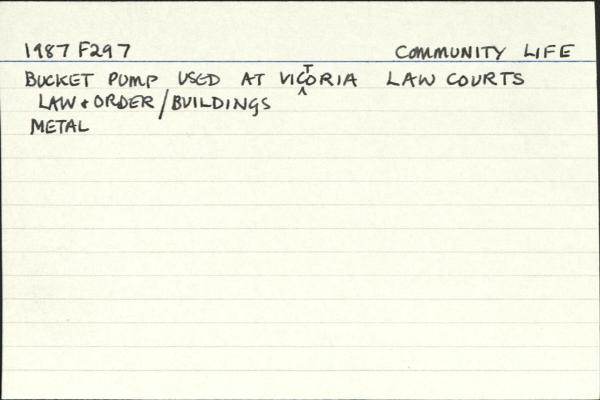 1987 F297 COMMUNITY LIFE
BUCKET PUMP USED AT VICTORIA LAW COURTS
LAW + ORDER / BUILDINGS
METAL